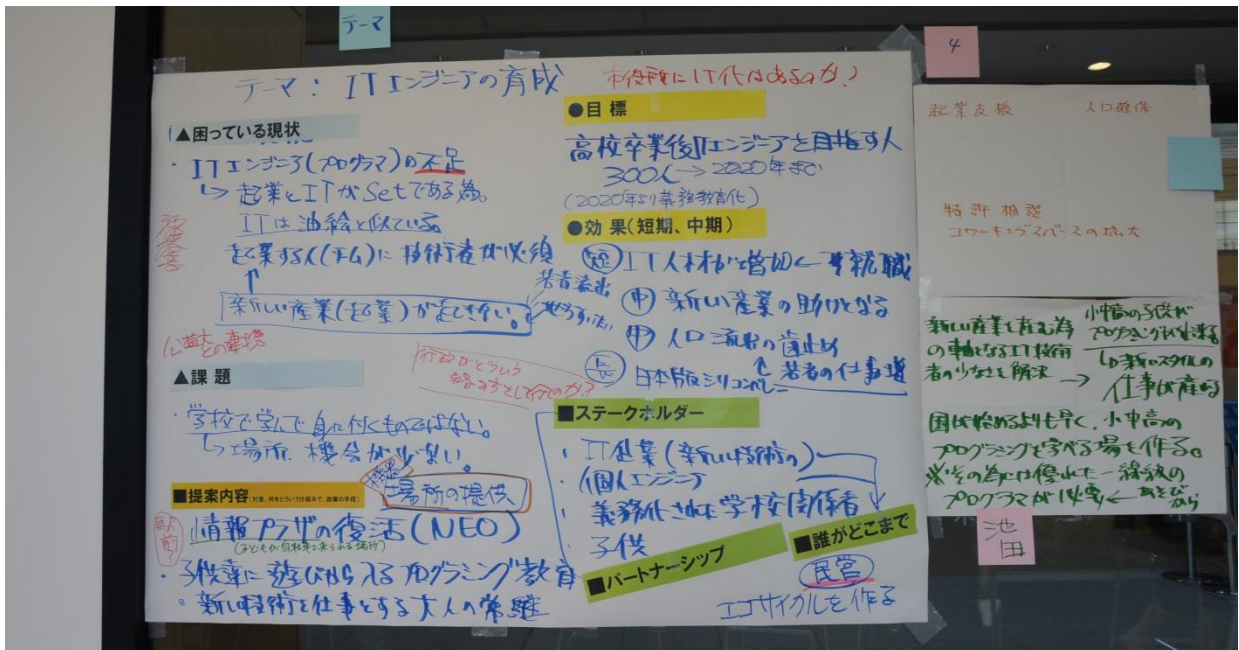 テーマ
4
テーマ：ITエンジニアの育成
市役所にIT化はあるのか？
▲困っている現状
・ITエンジニア(プログラマ)の不足
↳起業とITがSetである為。
ITは油絵と似ている。
起業する人(チーム)に技術者が必須
↑
新しい産業(起業)が起きない。
若者流出
との連携
▲課題
行政がどういう
・学校で学んで身に付くものではない。
↳場所、機会が少ない。
■提案内容
場所の提供
情報プラザの復活(NEO)
(子どもが自転車で来られる場所)
・子供達に遊びから入るプログラミング教育
・新しい技術を仕事とする大人の常駐
●目標
高校卒業後ITエンジニアを目指す人
300人→2020年まで
(2020年より義務教育化)
●効果(短期、中期)
短 IT人材が増加←就職
中 新しい産業の助けとなる
中 人口流出の歯止め
↑若者の仕事増
長 日本版シリコンバレー
■ステークホルダー
・IT企業(新しい技術の)
・個人エンジニア
・義務化された学校関係者
・子供
■パートナーシップ
■誰がどこまで
民営
エコサイクルを作る
起業支援
人口確保
特許相談
コワーキングスペースの拡大
新しい産業を産む為
の軸となるIT技術
者の少なさを解決
→
小中高の子供が
プログラミングが出来る
↳新スタイルの
仕事が産まる
国が始めるよりも早く、小中高の
プログラミングを学べる場を作る。
※その為には優れた一線級の
プログラマが必要←あそびから
池田